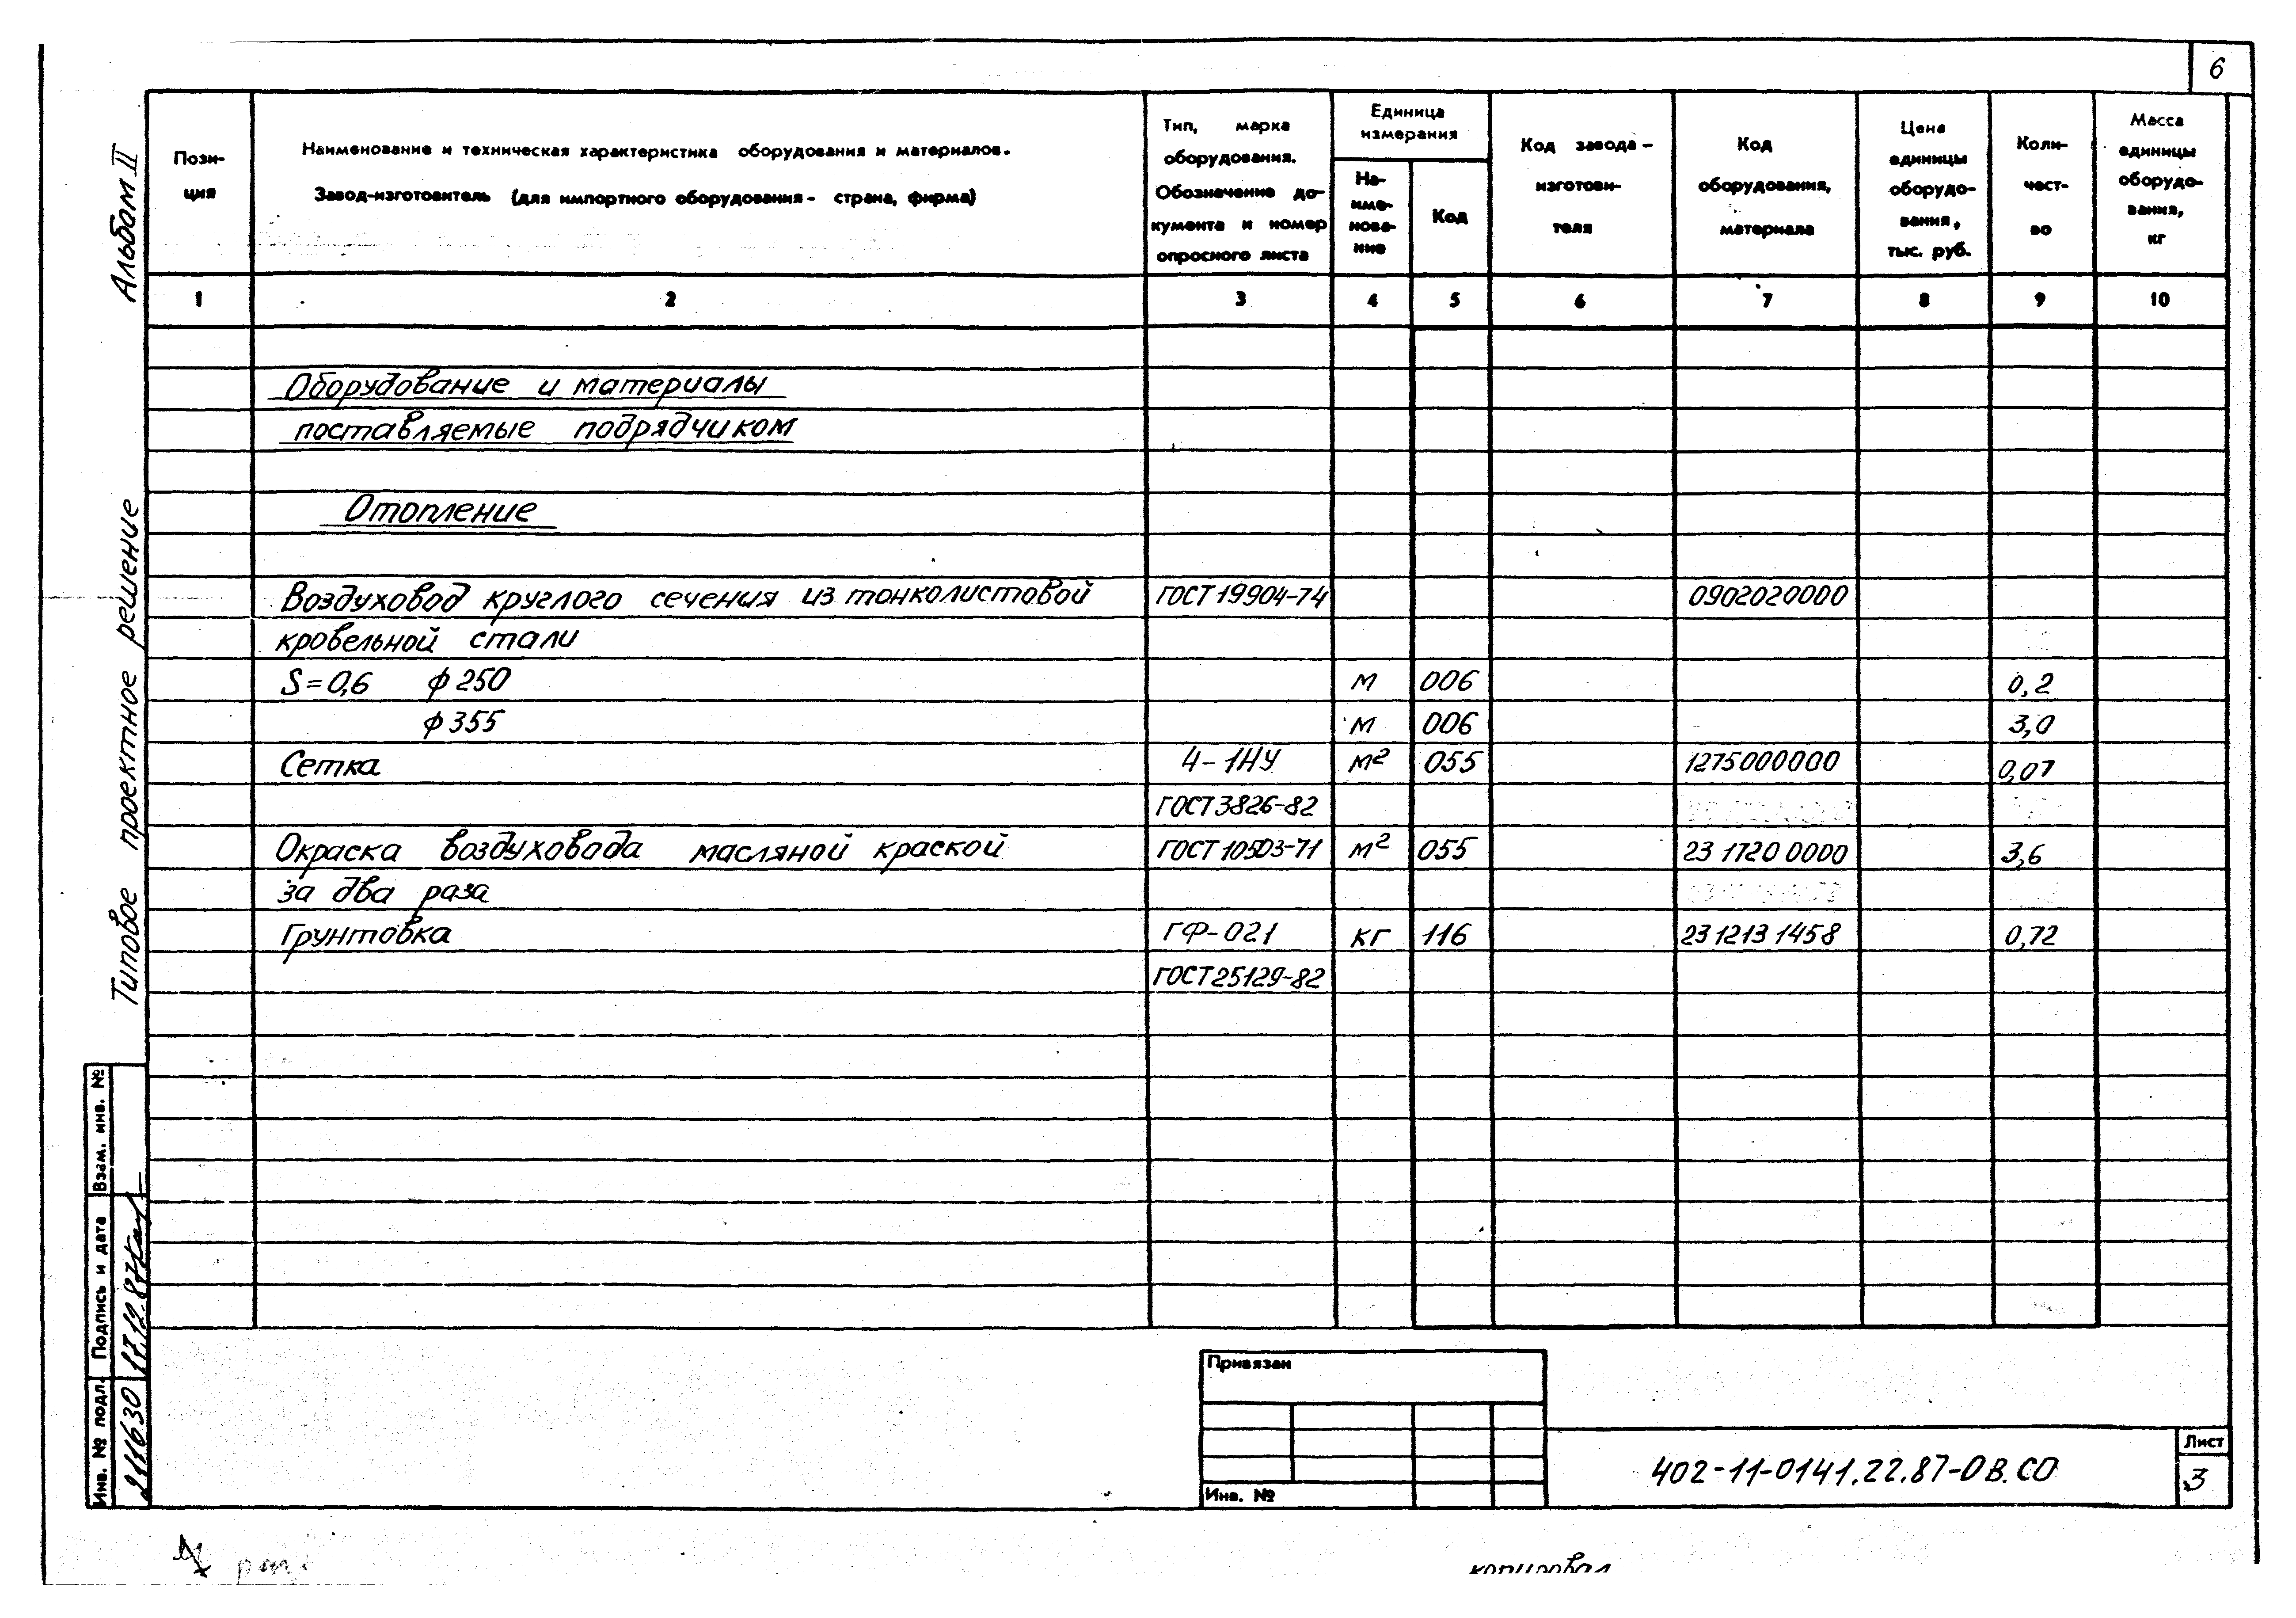 6
Альбом II
Типовое проектное решение
Пози-
ция
Наименование и техническая характеристика оборудования и материалов.
Завод-изготовитель (для импортного оборудования - страна, фирма)
Тип, марка
оборудования.
Обозначение до-
кумента и номер
опросного листа
Единица
измерения
На-
име-
нова-
ние
Код
Код завода -
изготови-
теля
Код
оборудования,
материала
Цена
единицы
оборудо-
вания,
тыс. руб.
Коли-
чест-
во
Масса
единицы
оборудо-
вания,
кг
1 2 3 4 5 6 7 8 9 10
Оборудование и материалы
поставляемые подрядчиком
Отопление
Воздуховод круглого сечения из тонколистовой ГОСТ 19904-74 0902020000
кровельной стали
S=0,6 ф 250 м 006 0,2
ф 355 м 006 3,0
Сетка 4-1НУ м² 055 1275000000 0,07
ГОСТ 3826-82
Окраска воздуховада масляной краской ГОСТ 10503-71 м² 055 23 1720 0000 3,6
за два раза
Грунтовка ГФ-021 кг 116 23 1213 1458 0,72
ГОСТ 25129-82
Взам. инв. №
Подпись и дата
17.12.87
Инв. № подл.
Привязан
Инв. №
402-11-0141.22.87-ОВ.СО
Лист
3
копировал